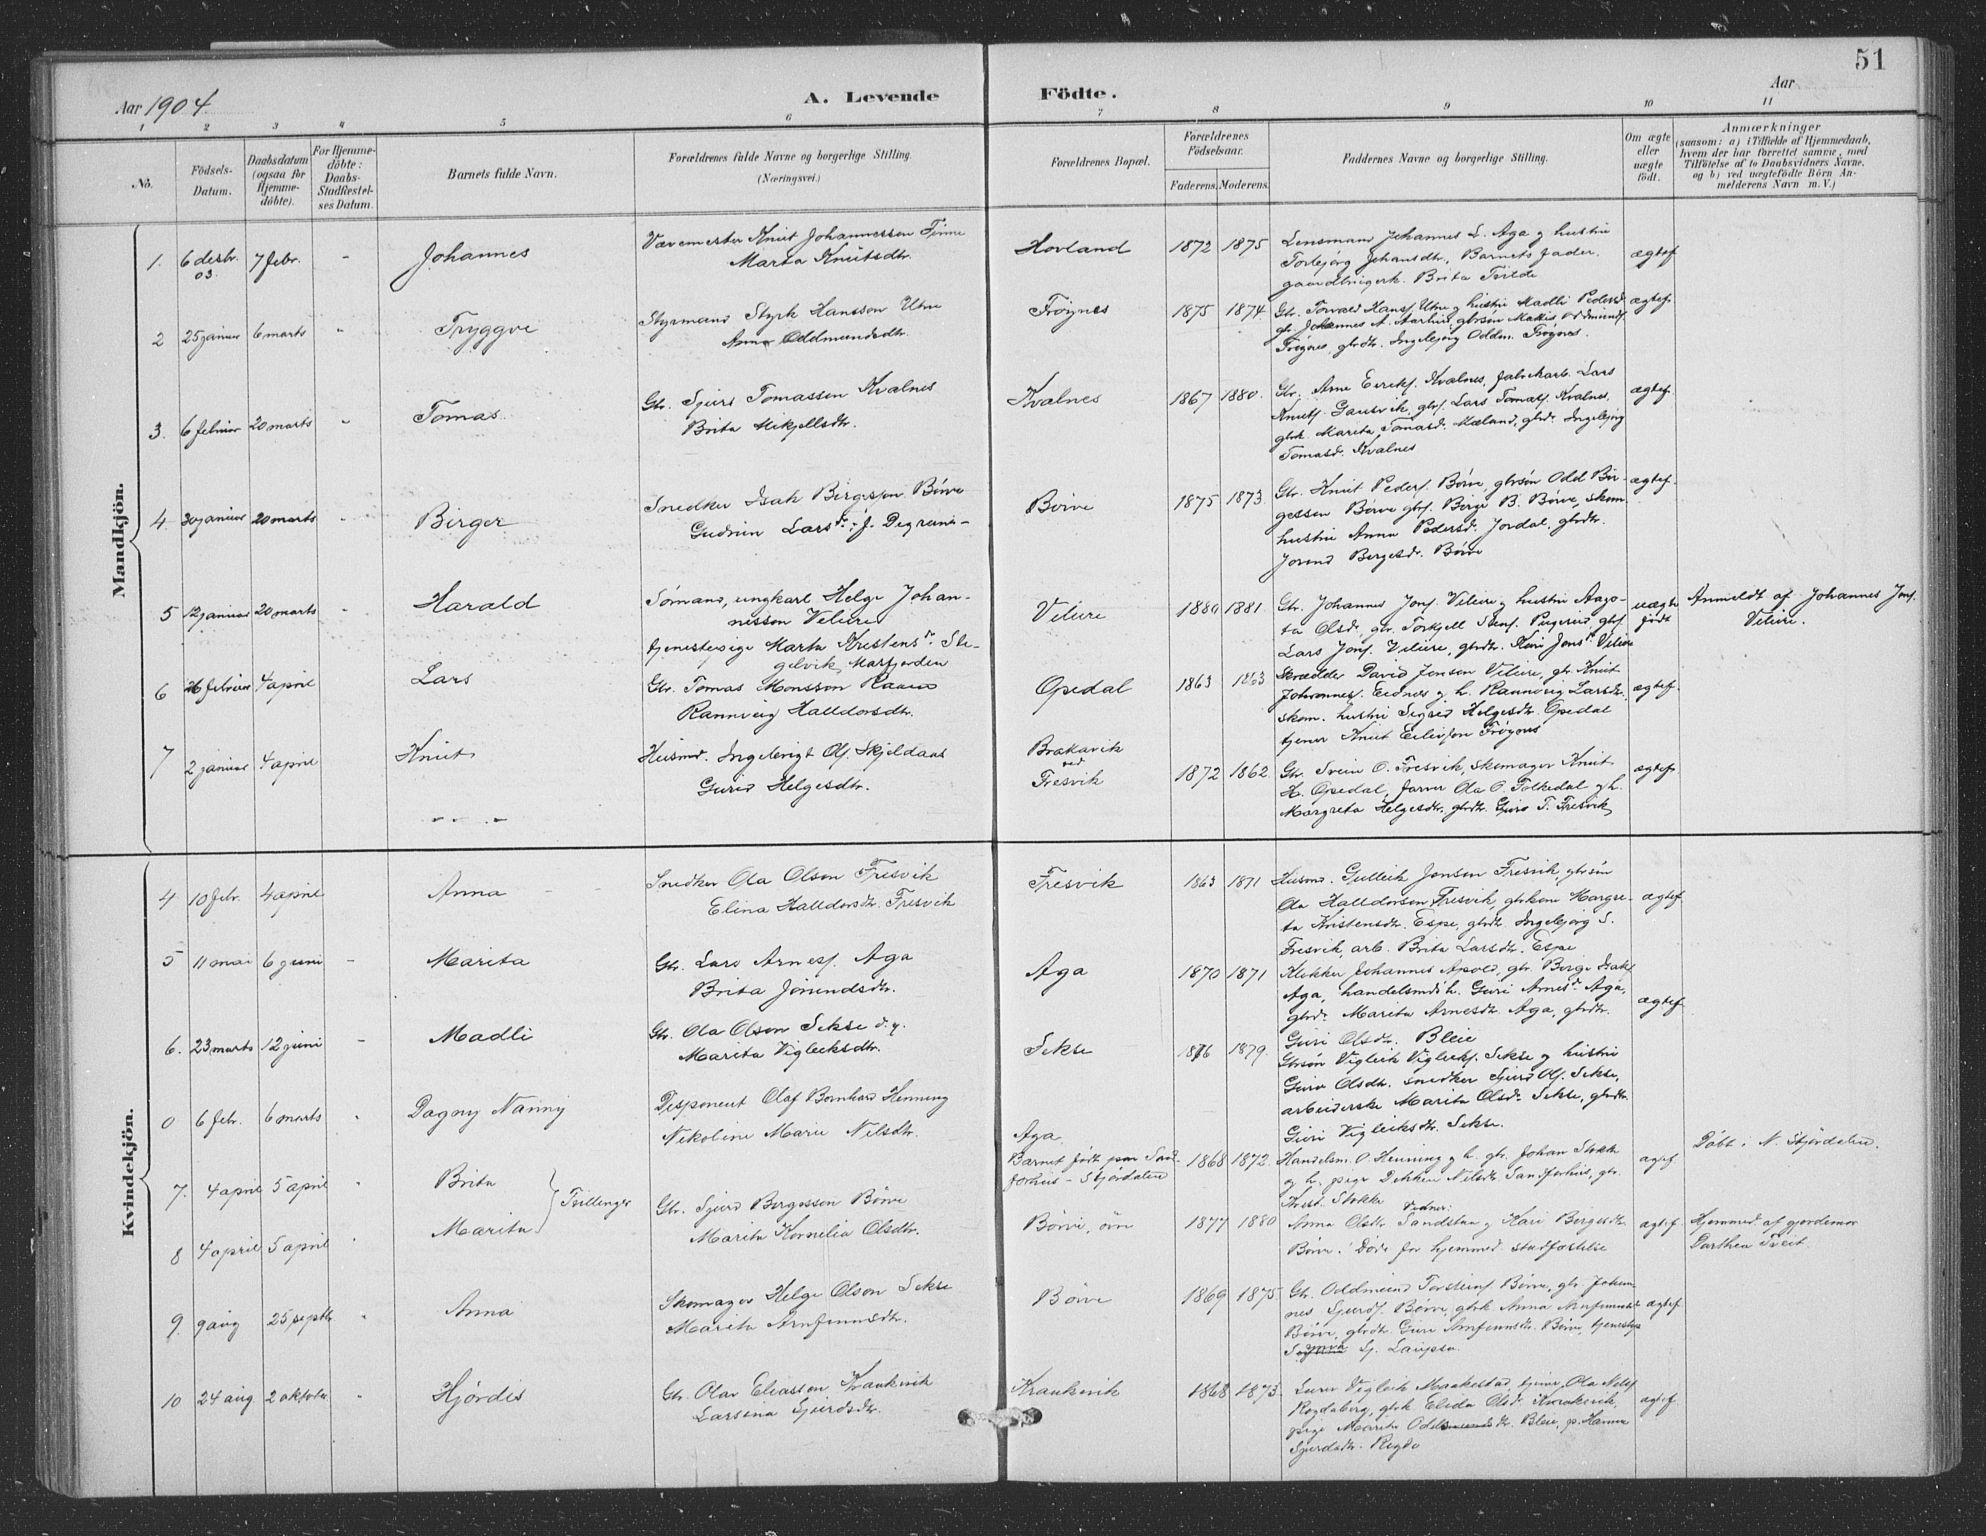 51
Aar 1904
A. Levende Födte.
Aar
1 2 3 4 5 6 7 8 9 10 11
No.
Födsels-Datum.
Daabsdatum (ogsaa for Hjemme-döbte).
For Hjemme-döbte: Daabs-Stadfæstel-ses Datum.
Barnets fulde Navn.
Forældrenes fulde Navne og borgerlige Stilling. (Næringsvei.)
Forældrenes Bopæl.
Forældrenes Födselsaar.
Faderens. Moderens.
Faddernes Navne og borgerlige Stilling.
Om ægte eller uægte födt.
Anmærkninger (saasom: a) i Tilfælde af Hjemmedaab, hvem der har forrettet samme, med Tilföielse af to Daabsvidners Navne, og b) ved uægtefödte Börn An-melderens Navn m. V.)
Mandkjön.
1. 6 desbr. 03. 7 febr. - Johannes
Vævemester Knut Johannesson
Marta Knutsdtr.
Hovland 1872 1875
Lensmand Johannes L. Aga og hustru
Torbjørg Johansdtr., Barnets fader,
Brita Tveite
ægtef.
2 25 januar 6 marts " Tryggve
Styrmand Styrk Hansson Utne
Anna Oddmundsdtr.
Frøynes 1875 1874
Gbr. Torvald Hansf. Utne og hustru Madli Pedersd.
Frøynes, gbrdtr. Ingebjørg Oddm. Frøynes.
ægtef.
3. 6 februar 20 marts " Tomas
Gbr. Sjurd Tomassen Kvalnes
Brita Mikjellsdtr.
Kvalnes 1867 1880.
Gbr. Arne Eirikf. Kvalnes, fabrikarb. Lars
Knutf. Gausvik, gbrs. Lars Tomasf. Kvalnes,
gbrk. Marita Tomasd. Mæland, gbrdr. Ingebjørg
Tomasd. Kvalnes
ægtef.
4. 30 januar 20 marts " Birger
Snedker Isak Birgesson Børve
Gudrun Larsdr.
Børve 1875 1873
Gbr. Knut Pedersf. Børve, gbrsøn Odd Bir-
gesson Børve gbrs. Børge B. Børve, skom.
hustru Anna Pedersd. Jordal, gbrdtr.
Jorund Bergesdr. Børve
ægtef.
5 12 januar 20 marts " Harald
Sømand, ungkarl Helge Johan-
nesson Velure
tjenestepige Marta Kristensdr.
Velure 1880 1881.
Gbr. Johannes Jonf. Velure og hustru Aago-
ta Olsdr.
Lars Jonf. Velure, gbrdtr. Kari Jonsdr. Velure
uægte født
Anmeldt af Johannes Jonf. Velure.
6 26 februar 4 april Lars
Gbr. Tomas Monsson
Rannveig Halldorsdtr.
Opedal 1863 1863
Skrædder David Jonson Velure, gbr. Knut
Johannesf. Eidnes og h. Rannveig Larsdtr.
skom. hustru Sigrid Helgesdtr. Opedal
tjener Knut Eilivson Frøynes
ægtef.
7 2 januar 4 april Knut
Husmd. Ingebrigt Olf. Skjeldaas
Gurid Helgesdtr.
Brakavik ved Tresvik
1872 1862.
Gbr. Svein O. Tresvik, skomager Knut
H. Opedal, farver Ola O. Folkedal og h.
Margreta Helgesdtr., gbrdtr. Guro T. Tresvik
ægtef.
Kvindekjön.
4 10 febr. 4 april Anna
Snedker Ola Olson Tresvik
Elina Halldorsdtr. Tresvik
Tresvik 1863 1871
Husmd. Gulleik Jonsen Tresvik, gbrsøn
Ola Halldorson Tresvik, gbrkone Margre-
ta Kristensdtr. Espe, gbrdtr. Ingebjørg S.
Tresvik, arb. Brita Larsdtr. Espe
ægtef.
5 11 mai 6 juni - Marita
Gbr. Lars Arnesf. Aga
Brita Jørundsdtr.
Aga 1870 1871
Klokker Johannes Apold, gbr. Børge Isakf.
Aga, handelsmds h. Guri Arnesdr. Aga,
gbrdr. Marita Arnesdtr. Aga, gbrdtr.
Guri Olsdtr. Bleie
ægtef.
6. 23 marts 12 juni - Madli
Gbr. Ola Olson Sekse d. y.
Marita Vigleiksdtr.
Sekse 1876 1879.
Gbrsøn Vigleik Vigleikf. Sekse og hustru
Guro Olsdtr. snedker Sjurd Olf. Sekse,
arbeiderske Marita Olsdr. Sekse, gbrdtr.
Guri Vigleiksdtr. Sekse.
0 6 febr. 6 marts " Dagny Nanny
Disponent Olaf Bernhard Henning
Nikoline Marie Nilsdtr.
Aga.
Barnet født paa Sand-
ferhus - Stjørdalen
1868 1872.
Handelsm. O. Henning og h. gbr. Johan Stokke
og h. pige Dikken Nilsdtr. Sandferhus, gbr.
Krist. Stokke
ægtef.
Døbt i N. Stjørdalen.
7. 4 april 5 april Brita
8 4 april 5 april " Marita
Tvillinger
Gbr. Sjurd Bergesson Børve
Marita Kornelia Olsdtr.
Børve, øvre 1877 1880
Vidner:
Anna Olsdtr. Sandstaa og Kari Bergesdtr.
Børve. Døde før hjemmed. stadfæstelse
ægtef.
Hjemmed. af gjordemor
Dorthea Tveit.
9. 9 aug 25 septbr. " Anna
Skomager Helge Olson Sekse
Marita Arnfinnsdtr.
Børve 1869 1875
Gbr. Oddmund Torsteinf. Børve, gbr. Johan-
nes Sjurdf. Børve, gbrk Anna Arnfinnsdtr.
Børve, gbrdtr. Guri Arnfinnsdtr. Børve, tjenestep.
Sj. Laupsa
ægtef.
10 24 aug 2 oktober " Hjørdis
Gbr. Olav Eliassen Kraakevik
Larsina Sjurdsdtr.
Kraakevik 1868 1873.
Lærer Vigleik Maakestad, tjener Ola Nilsf.
Rogdaberg, gbrk Elida Olsd. Kraakevik,
pige Marita Oddmundsdtr. Bleie, p. Hanna
Sjurdsdtr. Rogde
ægtef.